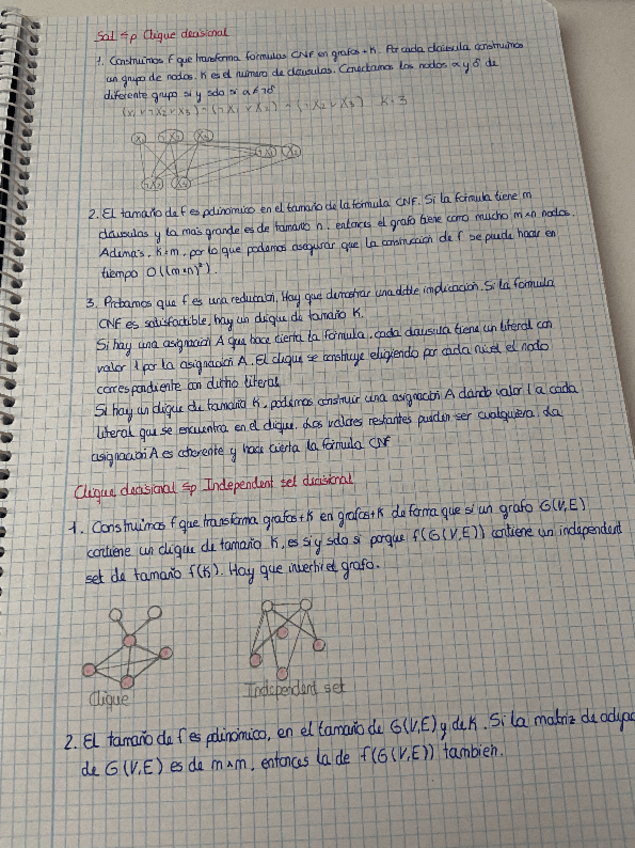 Sat ≤p Clique decisional
1. Construimos f que transforma formulas CNF en grafos + K. Por cada claúsula construimos
un grupo de nodos. K es el número de claúsulas. Conectamos los nodos α y δ de
diferente grupo si y solo si α ≠ ¬δ
(x1 ∨ ¬X2 ∨ X3) ∧ (¬X1 ∨ X3) ∧ (¬X2 ∨ X3) K=3
2. El tamaño de f es polinómico en el tamaño de la fórmula CNF. Si la fórmula tiene m
claúsulas y la más grande es de tamaño n, entonces el grafo tiene como mucho m×n nodos.
Además, K=m, por lo que podemos asegurar que la construcción de f se puede hacer en
tiempo O((m×n)²).
3. Probamos que f es una reducción. Hay que demostrar una doble implicación. Si la fórmula
CNF es satisfactible, hay un clique de tamaño K.
Si hay una asignación A que hace cierta la fórmula, cada claúsula tiene un literal con
valor 1 por la asignación A. El clique se construye eligiendo por cada nivel el nodo
correspondiente con dicho literal
Si hay un clique de tamaño K, podemos construir una asignación A dando valor 1 a cada
literal que se encuentra en el clique. Los valores restantes pueden ser cualquiera. La
asignación A es coherente y hace cierta la fórmula CNF
Clique decisional ≤p Independent set decisional
1. Construimos f que transforma grafos+K en grafos+K de forma que si un grafo G(V,E)
contiene un clique de tamaño K, es si y solo si porque f(G(V,E)) contiene un independent
set de tamaño f(K). Hay que invertir el grafo.
Clique
Independent set
2. El tamaño de f es polinómico, en el tamaño de G(V,E) y de K. Si la matriz de
de G(V,E) es de m×m, entonces la de f(G(V,E)) también.